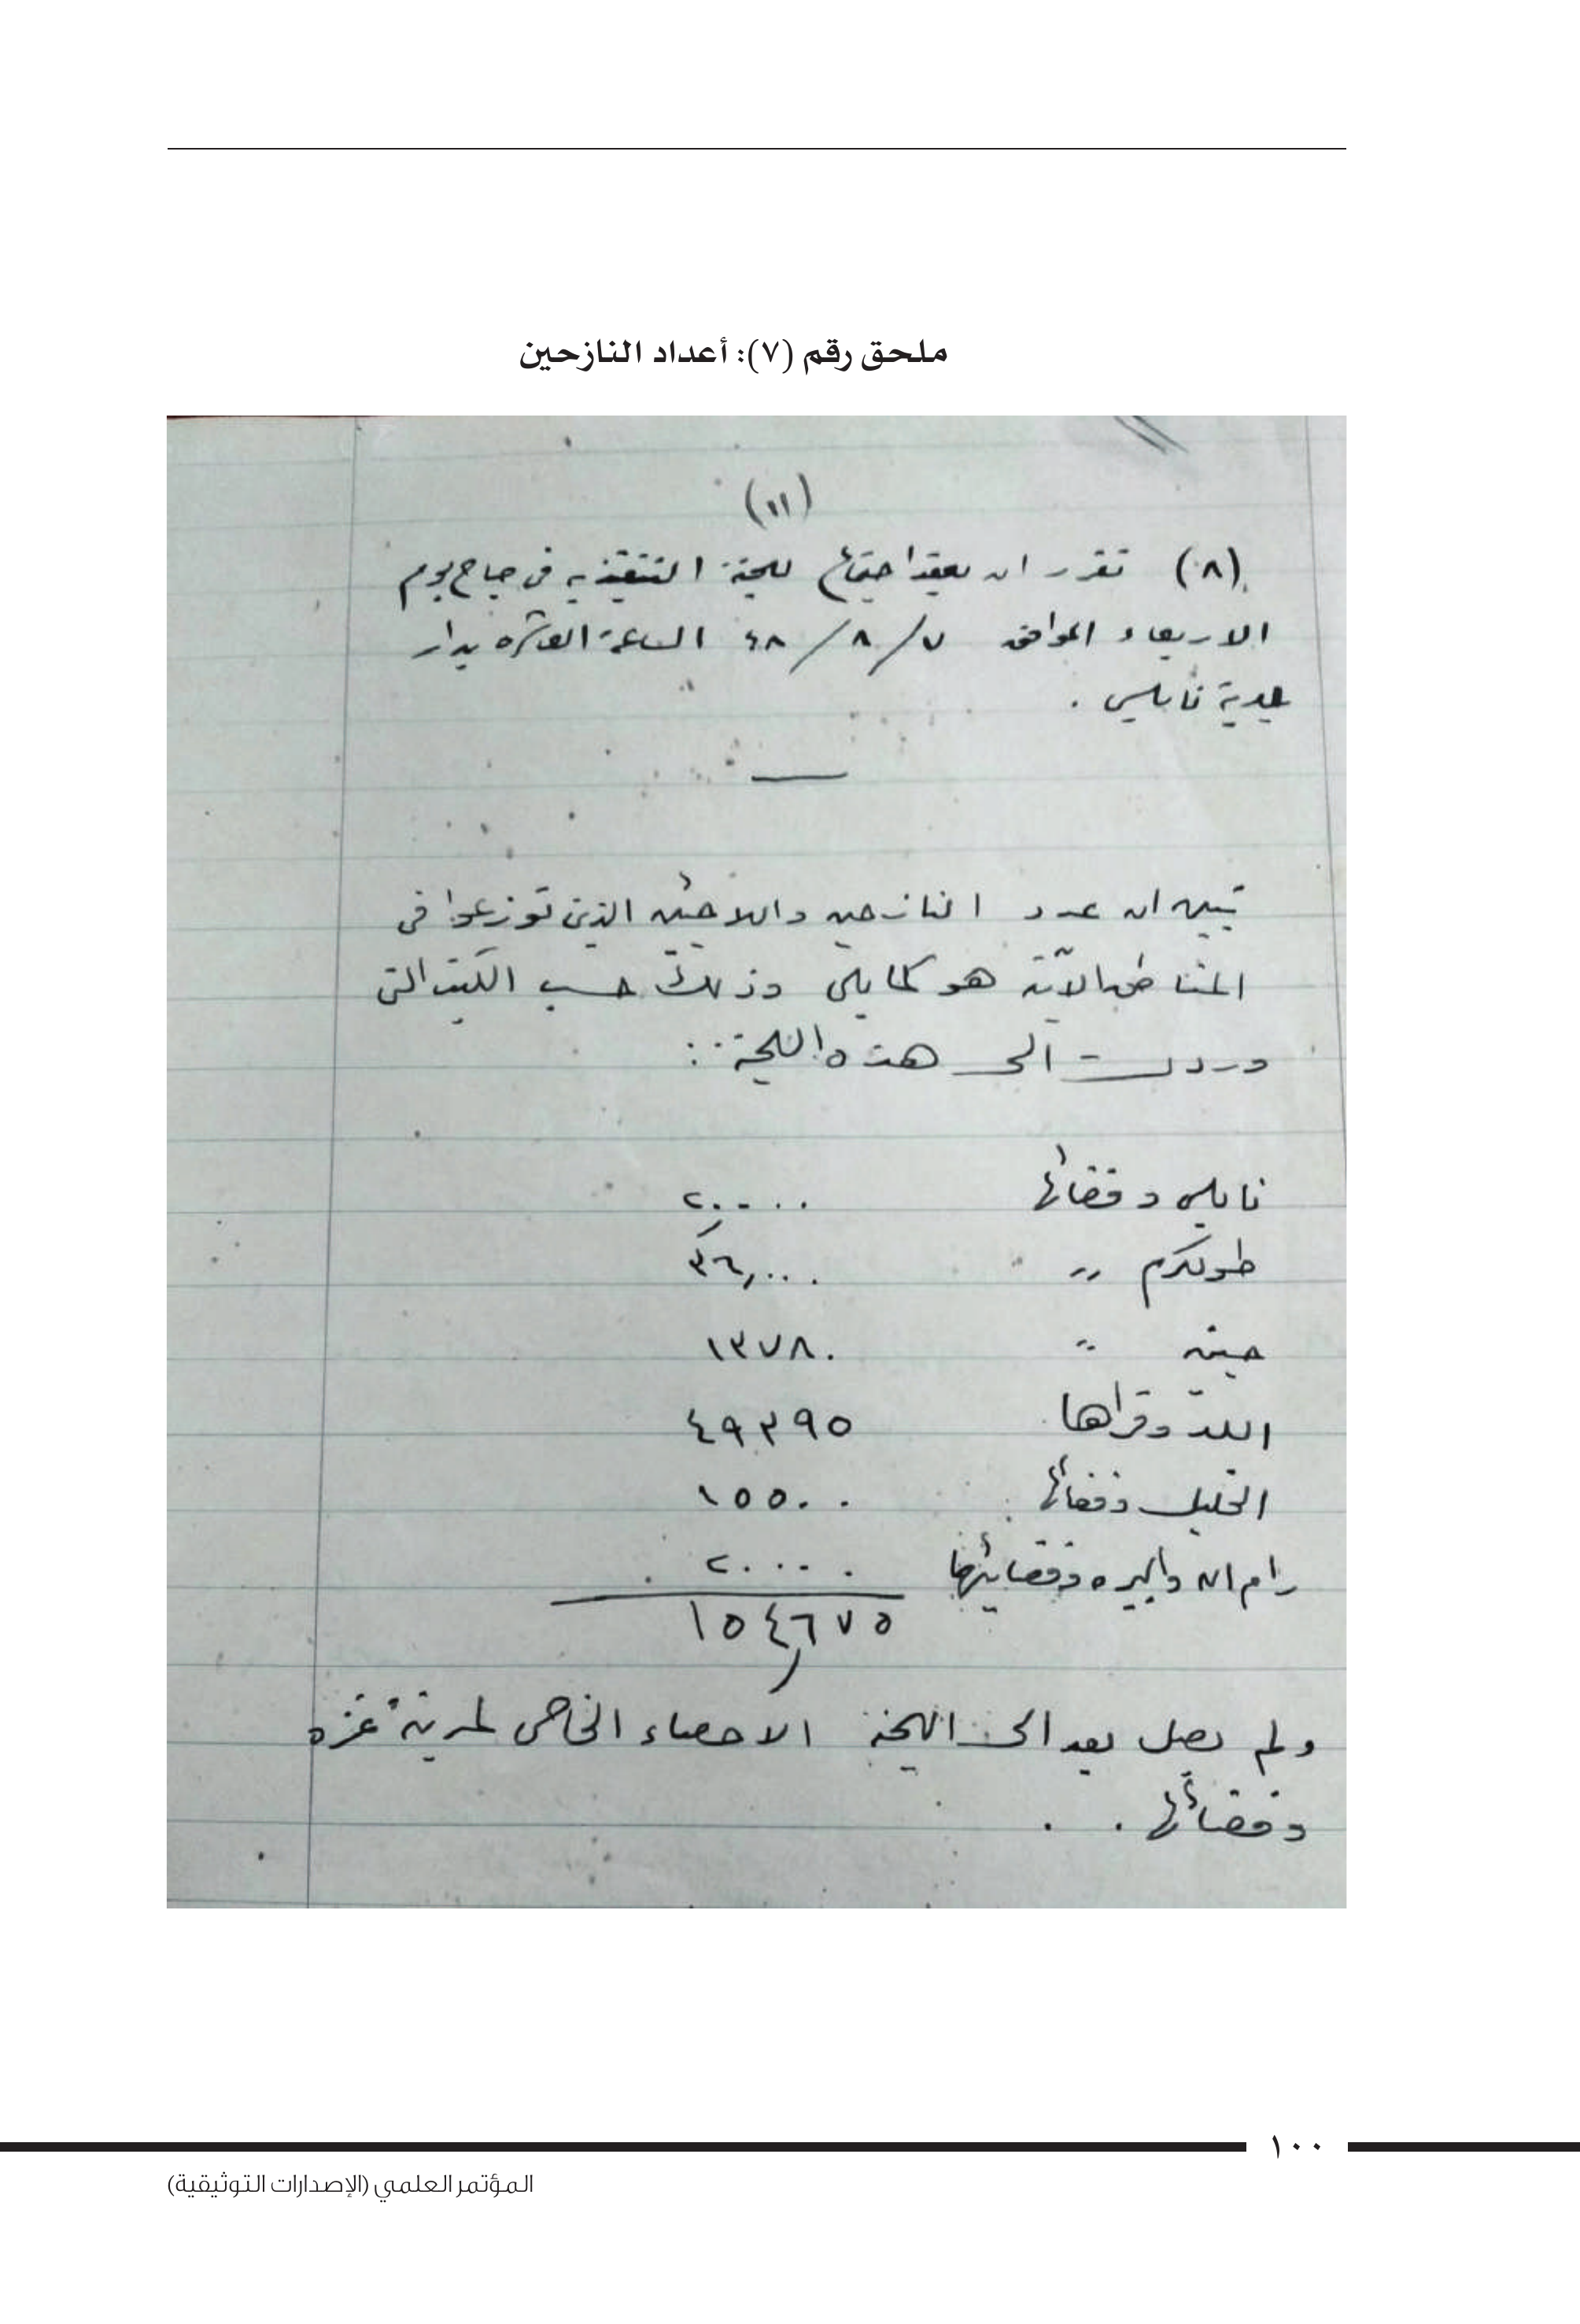 ملحق رقم (٧): أعداد النازحين
(١١)
(٨) تقرر ان يعقد اجتماع للجنة التنفيذيه في صباح يوم
الاربعاء الموافق ٧/٨/٤٨ الساعة العاشره بدار
بلدية نابلس .
تبين ان عدد النازحين واللاجئين الذين توزعوا في
المناطق الآتية هو كما يلي وذلك حسب الكتب التي
وردت الى هذه اللجنة :
نابلس وقضائها ٢٠٠٠٠
طولكرم " ٣٦,٠٠٠
جنين " ١٣٧٨٠
اللد وقراها ٤٩٣٩٥
الخليل وقضائها ١٥٥٠٠
رام الله والبيره وقضائيها ٢٠٠٠٠
١٥٤,٦٧٥
ولم يصل بعد الى اللجنة الاحصاء الخاص لمدينة غزه
وقضائها .
١٠٠
المؤتمر العلمي (الإصدارات التوثيقية)